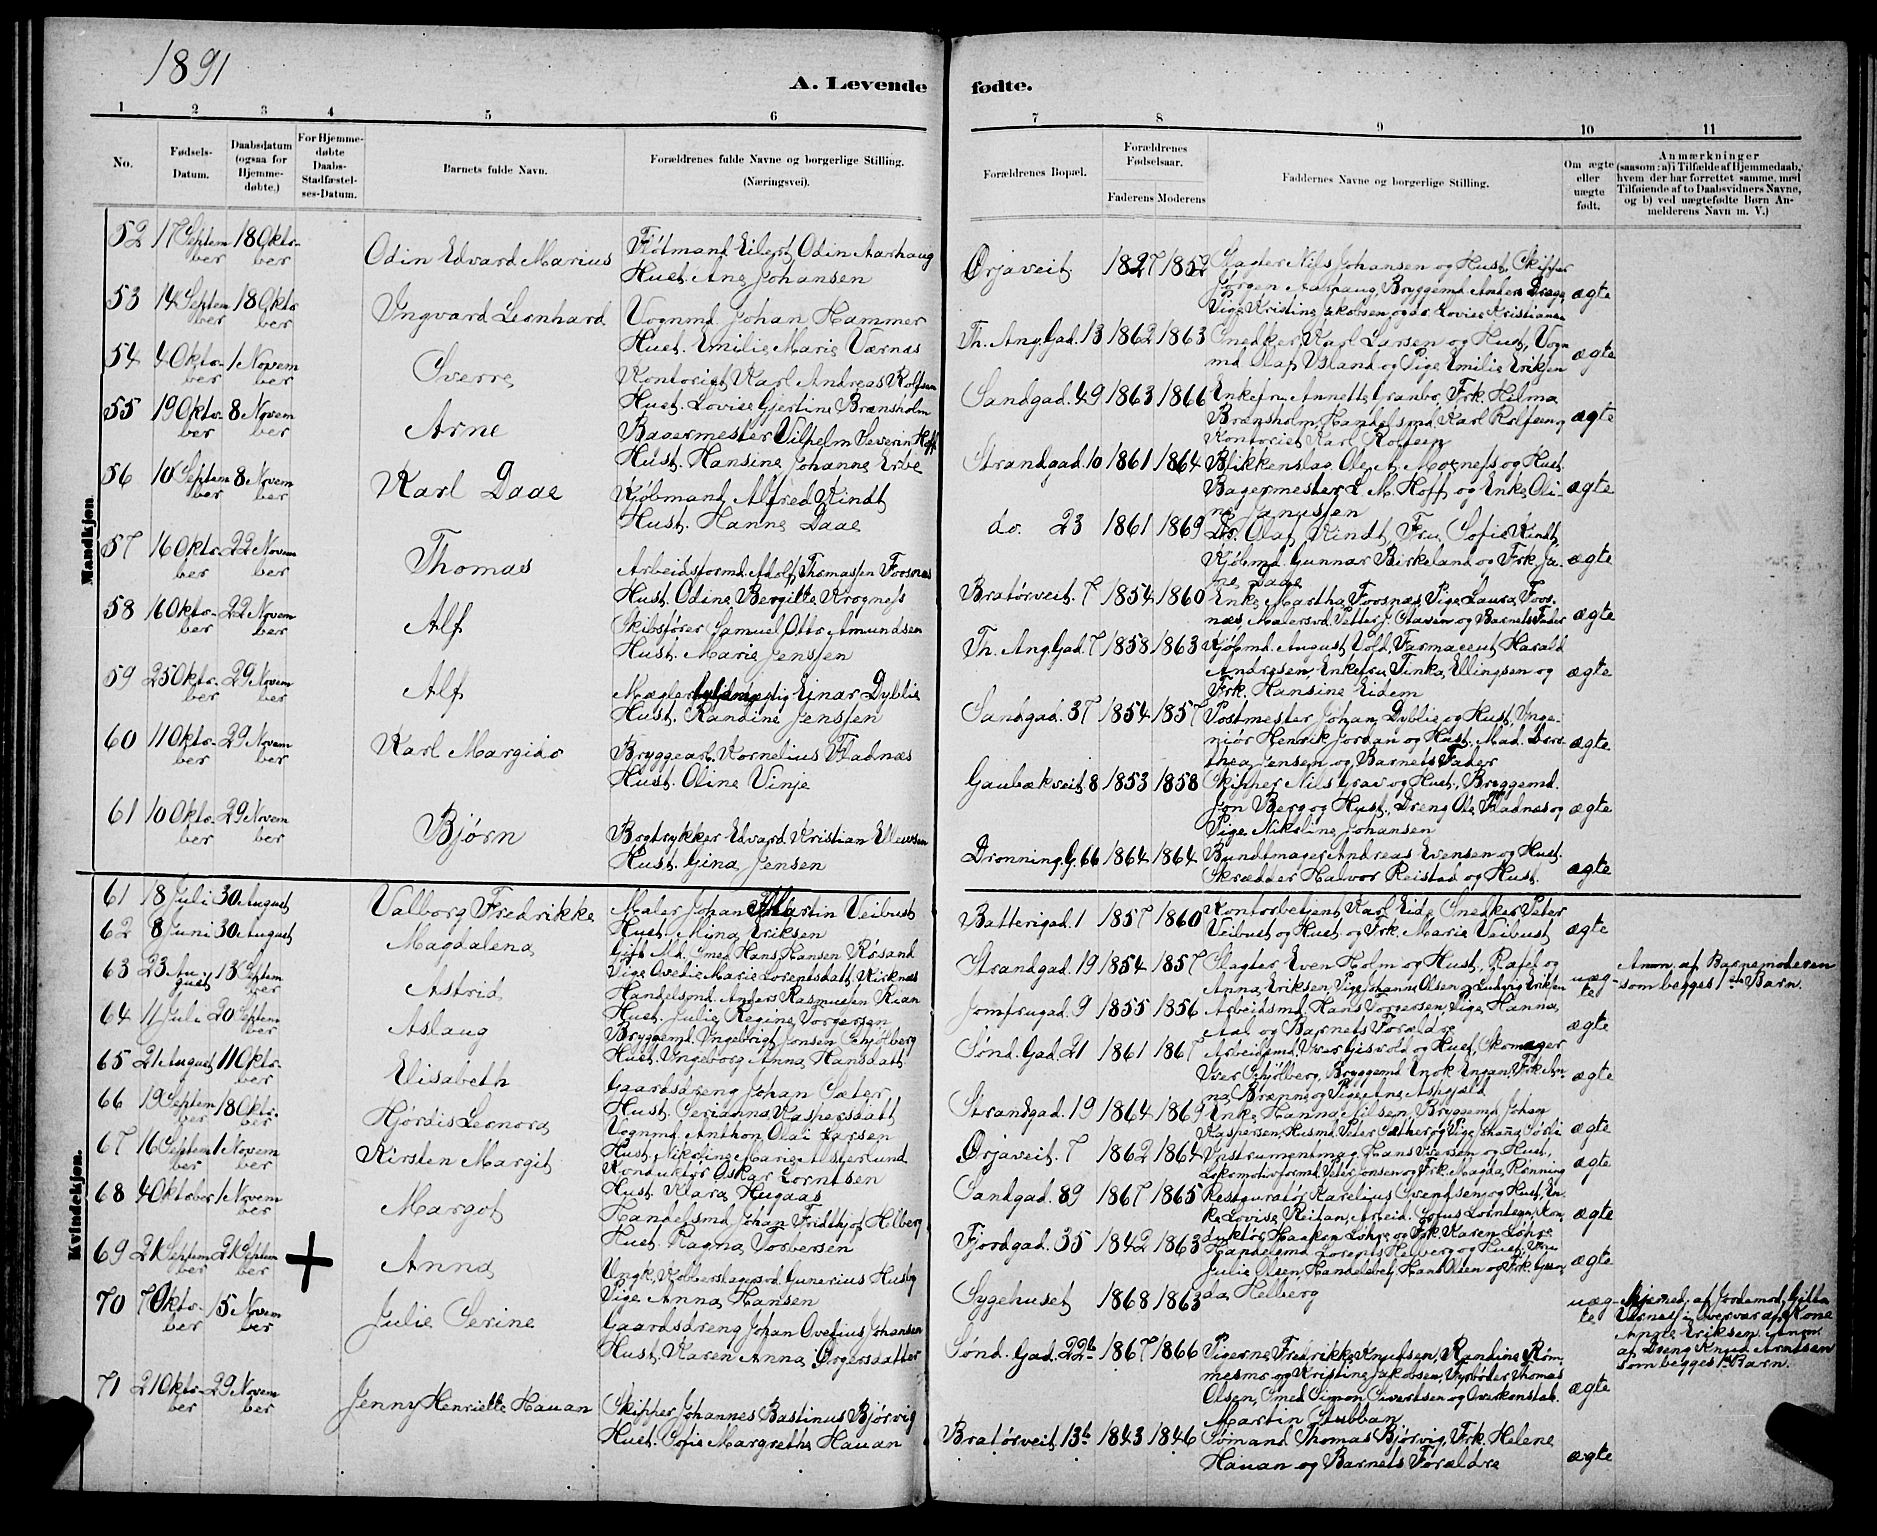 1891
A. Levende fødte.
1 2 3 4 5 6 7 8 9 10 11
No.
Fødsels-Datum.
Daabsdatum (ogsaa for Hjemme-døbte.)
For Hjemme-døbte Daabs-Stadfæstel-ses-Datum.
Barnets fulde Navn.
Forældrenes fulde Navne og borgerlige Stilling. (Næringsvei).
Forældrenes Bopæl.
Forældrenes Fødselsaar.
Faderens Moderens
Faddernes Navne og borgerlige Stilling.
Om ægte eller uægte født.
Anmærkninger (saasom: a) i Tilfælde af Hjemmedaab, hvem der har forrettet samme, med Tilføiende af to Daabsvidners Navne, og b) ved uægtefødte Børn Anmelderens Navn m. V.)
Mandkjøn
52 17 September 18 Oktober Odin Edvard Marius Fløtmand Eilert Odin Aarhaug
Hust. Ane Johansen
Ørjaveit. 1827 1852 Slagter Nils Johansen og Hust, Skipper
Jörgen Aarhaug, Bryggemd. Anders Drage,
Pige Kristine Jakobsen og do Lovise Kristiansen
ægte
53 14 September 18 Oktober Ingvard Leonhard Vognmd. Johan Hammer
Hust. Emilie Marie Værnes
Th. Ang. Gad. 13 1862 1863 Snedker Karl Larsen og Hust, Vogn-
md Olaf Ystand og Pige Emilie Eriksen
ægte
54 4 Oktober 1 November Sverre Kontorist Karl Andreas Rolfsen
Hust. Lovise Gjertine Brænsholm
Sandgad. 49 1863 1866 Enkefru Annette Granbo, Frk. Helma
Brænsholm, Handelsmd. Karl Rolfsen og
Kontorist Karl Rolfsen
ægte
55 19 Oktober 8 November Arne Bagermester Vilhelm Severin Hoff
Hust. Hansine Johanne Erbe
Strandgad. 10 1861 1864 Blikkenslag. Ole A. Moxness og Hust.
Bagermester L. M. Hoff og Enke Oli-
ne Janussen
ægte
56 10 September 8 November Karl Daae Kjøbmand Alfred Kindt
Hust. Hanne Daae
do. 23 1861 1869 Dr. Olaf Kindt, Fru Sofie Kindt
Kjøbmd. Gunnar Birkeland og Frk. Ja-
ne Daae
ægte
57 16 Oktober 22 November Thomas Arbeidsformd. Adolf Thomassen Foosnæs
Hust. Odine Bergitte Krogness
Bratørveit. 7 1854 1860 Enke Martha Foosnæs, Pige Laura Foos-
næs, Malersvd. Petter J. Staven og Barnets Fader
ægte
58 16 Oktober 22 November Alf Skibsfører Samuel Otto Amundsen
Hust. Marie Jenssen
Th. Ang. Gad. 7 1858 1863 Kjøbmd. August Vold, Farmaceut Harald
Andresen, Enkefru Tinka Ellingsen og
Frk. Hansine Eidem
ægte
59 25 Oktober 29 November Alf Mægler Einar Dyblie
Hust. Randine Jenssen
Sandgad. 37 1854 1857 Postmester Johan Dyblie og Hust, Inge-
niör Henrik Jordan og Hust, Mad. Doro-
thea Jensen og Barnets Fader
ægte
60 11 Oktober 29 November Karl Margido Bryggearb. Kornelius Fladnæs
Hust. Oline Vinje
Gaubækveit 8 1853 1858 Skipper Nils Grav og Hust, Bryggemd.
Jon Berg og Hust., Dreng Ole Fladnæs og
Pige Nikoline Johansen
ægte
61 10 Oktober 29 November Bjørn Bogtrykker Edvard Kristian Ellewsen
Hust. Gina Jensen
Dronning. G. 66 1864 1864 Bundtmager Andreas Evensen og Hust.
Skrædder Halvor Reistad og Hust.
ægte
Kvindekjøn.
61 18 Juli 30 August Valborg Fredrikke Maler Johan Martin Veibust
Hust. Mina Eriksen
Batterigad. 1 1857 1860 Kontorbetjent Karl Eid, Snedker Peter
Veibust og Hust og Frk. Marie Veibust
ægte
62 8 Juni 30 August Magdalena Gift Md. Smed Hans Hansen Røsand
Pige Ovedie Marie Lorentsdatt. Kirknæs
Strandgad. 19 1854 1857 Slagter Even Holm og Hust, Rafel og
Anna Eriksen, Pige Johanna Olsen og Ludvig Eriksen
uægte
Anm. af Barnemoderen
som begges 1ste Barn.
63 23 August 13 September Astrid Handelsmd. Anders Rasmussen Rian
Hust. Julie Regine Torgersen
Jomfrugad. 9 1855 1856 Arbeidsmd. Hans Torgersen, Pige Hanna
Aal og Barnets Forældre
ægte
64 11 Juli 20 September Aslaug Bryggemd. Ingebrigt Jonsen Schjølberg
Hust. Ingeborg Anna Hansdatt
Sønd. Gad. 21 1861 1867 Arbeidsmd. Iver Gisvold og Hust, Skomager
Iver Schjølberg, Bryggemd Enok Engan, Frk. An-
na Brænne og Pige Ane Aspjæld
ægte
65 21 August 11 Oktober Elisabeth Gaardsdreng Johan Sæter
Hust. Serianna Kaspersdatt
Strandgad. 19 1864 1869 Enke Hanna Nilsen, Bryggemd Johan
Kaspersen, Husmd. Peter Sæther og Pige
ægte
66 19 September 18 Oktober Hjördis Leonora Vognmd. Anthon Olai Larsen
Hust. Nikoline Marie Alsterlund
Ørjaveit. 7 1862 1864 Instrumentmag. Hans Iversen og Hust,
Lokomotivformd. Peter Jonsen og Frk. Magda Rønning
ægte
67 16 September 1 November Kirsten Margit Konduktör Oskar Lorntsen
Hust. Klara Hugaas
Sandgad. 89 1867 1865 Restauratør Karelius Svendsen og Hust, En-
ke Lovise Reitan, Arbeid. Lofus Lorntsen, Kon-
duktör Haakon Löhre og Frk. Karen Löhre
ægte
68 4 Oktober 1 November Margot Handelsmd. Johan Fridthjof Helberg
Hust. Ragna Torbersen
Fjordgad. 35 1842 1863 Handelsmd. Lorents Helberg og Hust, Fru
Julie Olsen, Handelsbet. Hans Olsen og Frk. Gjan-
da Helberg
ægte
69 21 September 21 September + Anna Ungk. Kobberslagersvd. Gunerius Husby
Pige Anna Hansen
Sygehuset 1868 1863
uægte
Hjemmed. af Jordemod. Gitta
Værnes i Overvær af Kone
Agate Eriksen. Anm.
af Dreng Knud Arntsen
som begges 1ste Barn.
70 7 Oktober 15 November Julie Serine Gaardsdreng Johan Ovedius Johansen
Hust. Karen Anna Ørgersdatter
Sønd. Gad. 22b 1867 1866 Pigerne Fredrikke Knutsen, Randine Röm-
mesmo og Kristine Jakobsen, Fyrbøder Thomas
Olsen, Smed Simon Sivertsen og Overkonstab.
Martin Stubban
ægte
71 21 Oktober 29 November Jenny Henriette Hauan Skipper Johannes Bastinus Bjørvig
Hust. Sofie Margrethe Hauan
Bratørveit 13b 1843 1846 Sømand Thomas Bjørvig, Frk. Helene
Hauan og Barnets Forældre
ægte